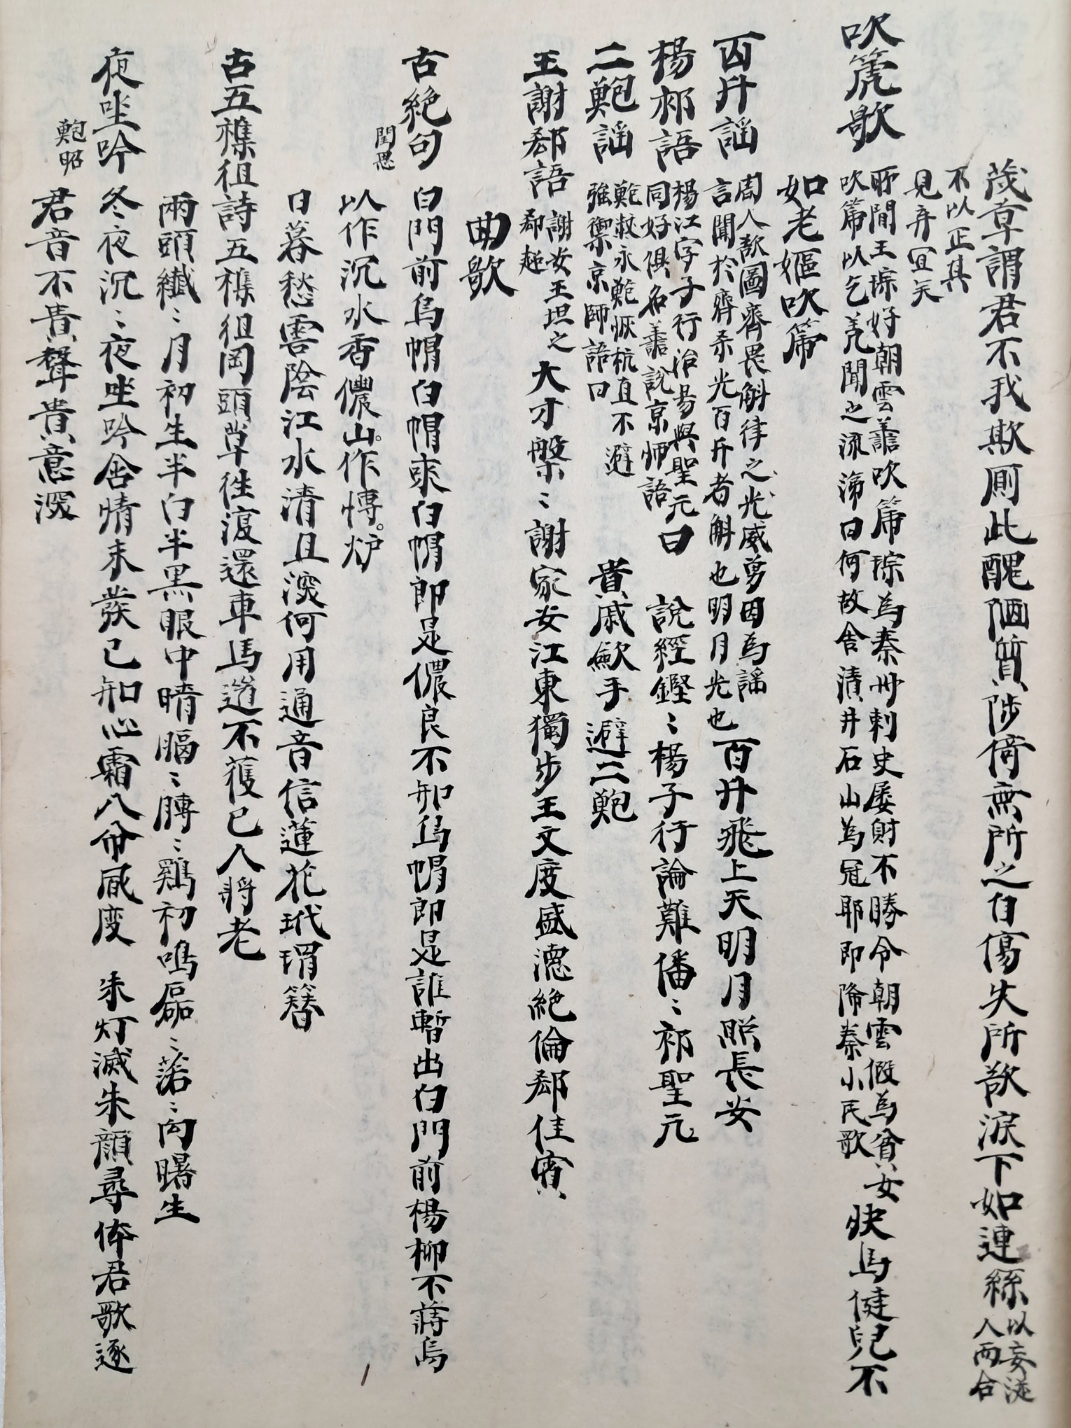 茂章謂君不我欺厠此醜陋質陟倚無所之自傷失所欲淚下如連絲以妾従人而合
不以正其見弃宜矣
吹篪歌 河間王琮好朝雲善吹篪琮為秦州刺史屡財不勝令朝雲假為貧女吹篪以乞羌聞之流涕曰何故舍漬井石山為冦耶即降秦小民歌 快馬健兒不
如老嫗吹篪
百升謡 周人欲圖齊畏斛律之光威勇因為謡言聞於齊系光百升者斛也明月光也 百升飛上天明月照長安
楊祁語 楊江字子行治易與聖元同好俱名善說京師語曰 說經鏗〻楊子行論難僠〻祁聖元
二鮑謡 鮑救永鮑恢杭直不避強禦京師語曰 貴戚歛手避二鮑
王謝郄語 謝安王坦之郄超 大才槃〻謝家安江東獨步王文度盛德絶倫郄佳賓
曲歌
古絶句 閨思 白門前烏帽白帽來白帽即是儂良不知烏帽即是誰暫出白門前楊柳不蔣烏
以作沉水香儂山作愽炉
日暮愁雲陰江水清且深何用通音信蓮花玳瑁簪
古五樵徂詩 五樵徂岡頭草徃復還車馬道不獲已人將老
兩頭纖〻月初生半白半黑眼中睛腷〻膊〻鷄初鳴磊〻落〻向曙生
夜坐吟 鮑昭 冬夜沉〻夜坐吟含情未發已知心霜入分風度 朱灯滅朱顔尋体君歌逐
君音不貴聲貴意深